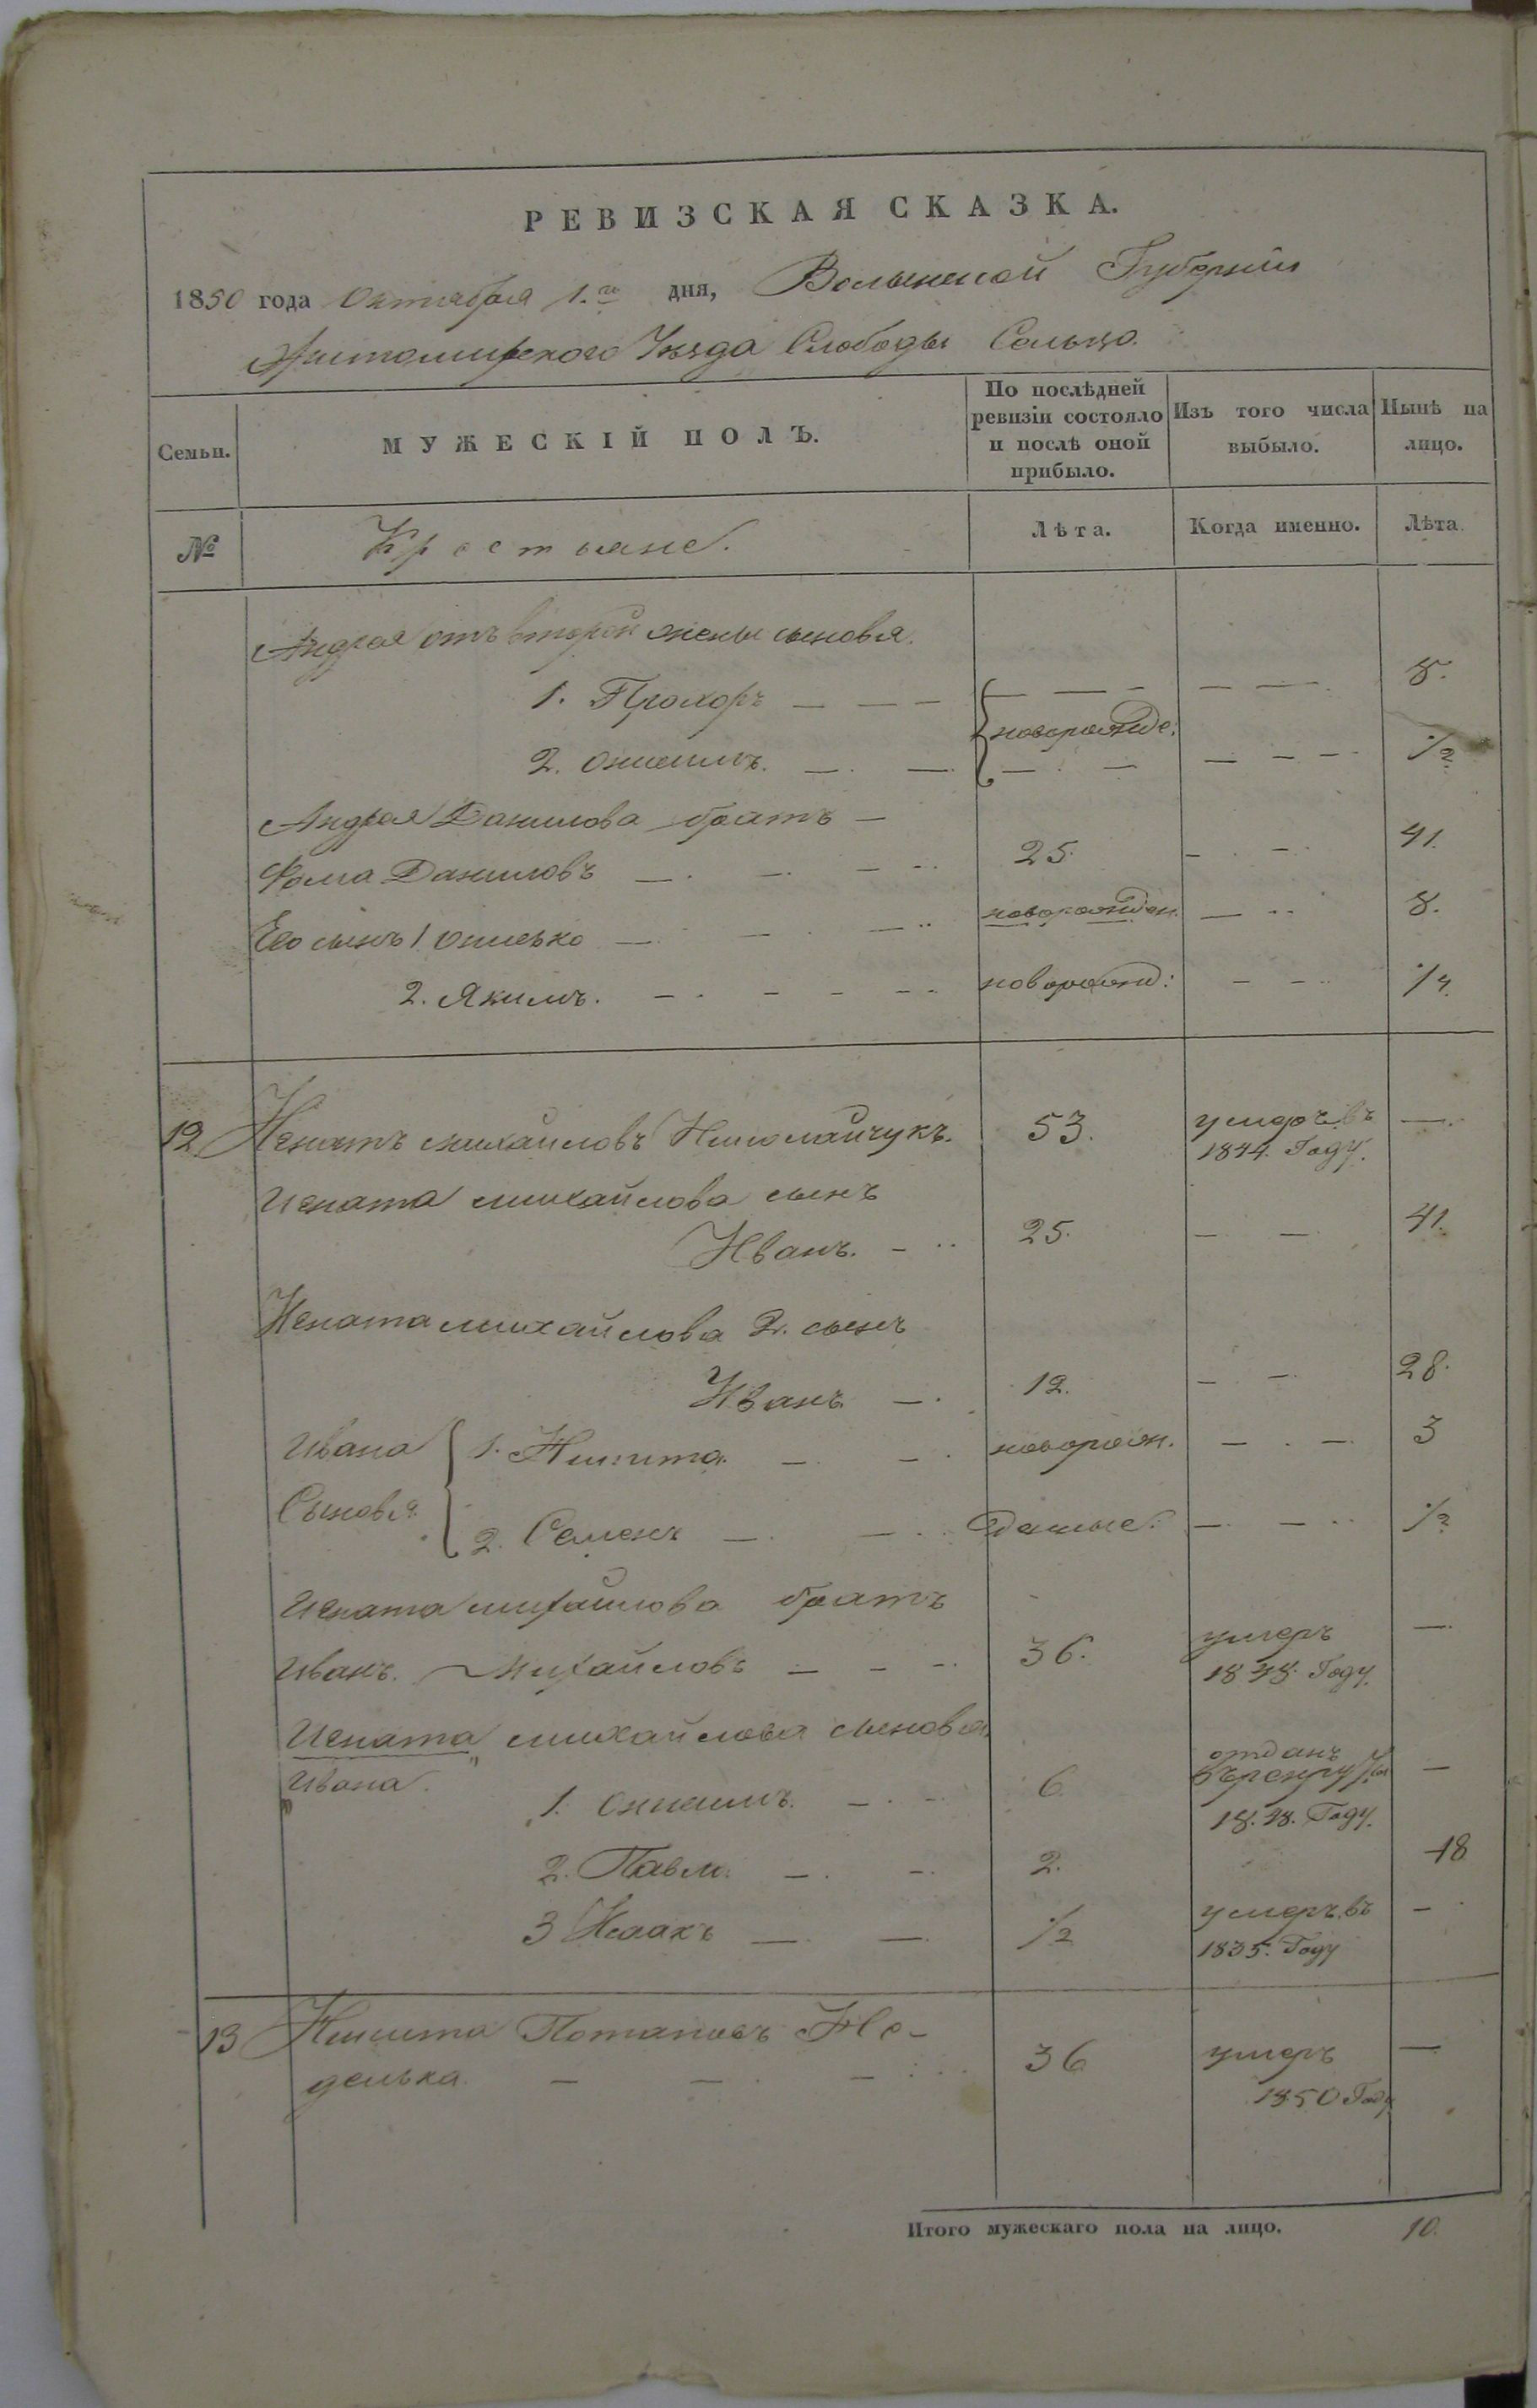 РЕВИЗСКАЯ СКАЗКА.
1850 года Октября 1.го дня, Волынской Губернии
Житомирского Уезда Слободы Сельцо.
Семьи.
МУЖЕСКІЙ ПОЛЪ.
По послѣдней ревизіи состояло и послѣ оной прибыло.
Изъ того числа выбыло.
Нынѣ на лицо.
№ Крестьяне. Лѣта. Когда именно. Лѣта
Андрея отъ второй жены сыновья.
1. Прохоръ — — — — — — — — 8.
новорожде:
2. Онисимъ. — — — — — — — 1/2
Андрея Данилова братъ —
Фома Даниловъ — — — 25. — — 41.
Его сынъ 1 Онисько — — — новорожден. — 8.
2. Якимъ. — — — — новорожд: — — 1/4.
12 Игнатъ Михайловъ Николайчукъ. 53. умеръ въ 1844. Году. —
Игната Михайлова сынъ
Иванъ. — 25. — — 41.
Игната Михайлова 2. сынъ
Иванъ — 12. — — 28.
Ивана 1. Никита — — новорож. — — 3
Сыновья 2. Семенъ — — денные. — — 1/2
Игната Михайлова братъ
Иванъ. Михайловъ — — — 36. умеръ 1848. Году. —
Игната Михайлова сыновья
Ивана. 1. Онисимъ. — — 6. отданъ въ рекруты 1848. Году. —
2. Павлъ. — — 2. 18
3 Исаакъ — — 1/2 умеръ въ 1835. Году —
13 Никита Потаповъ Не-
делька — — — 36 умеръ 1850 Году —
Итого мужескаго пола на лицо. 10.